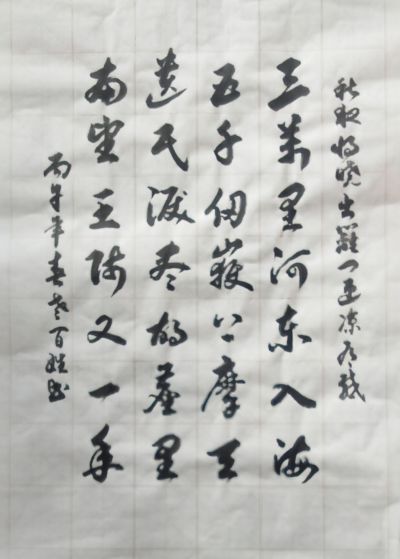 秋夜将晓出籬门迎凉有感
三萬里河东入海
五千仞嶽上摩天
遺民淚尽胡塵里
南望王师又一年
丙午年春老百姓书